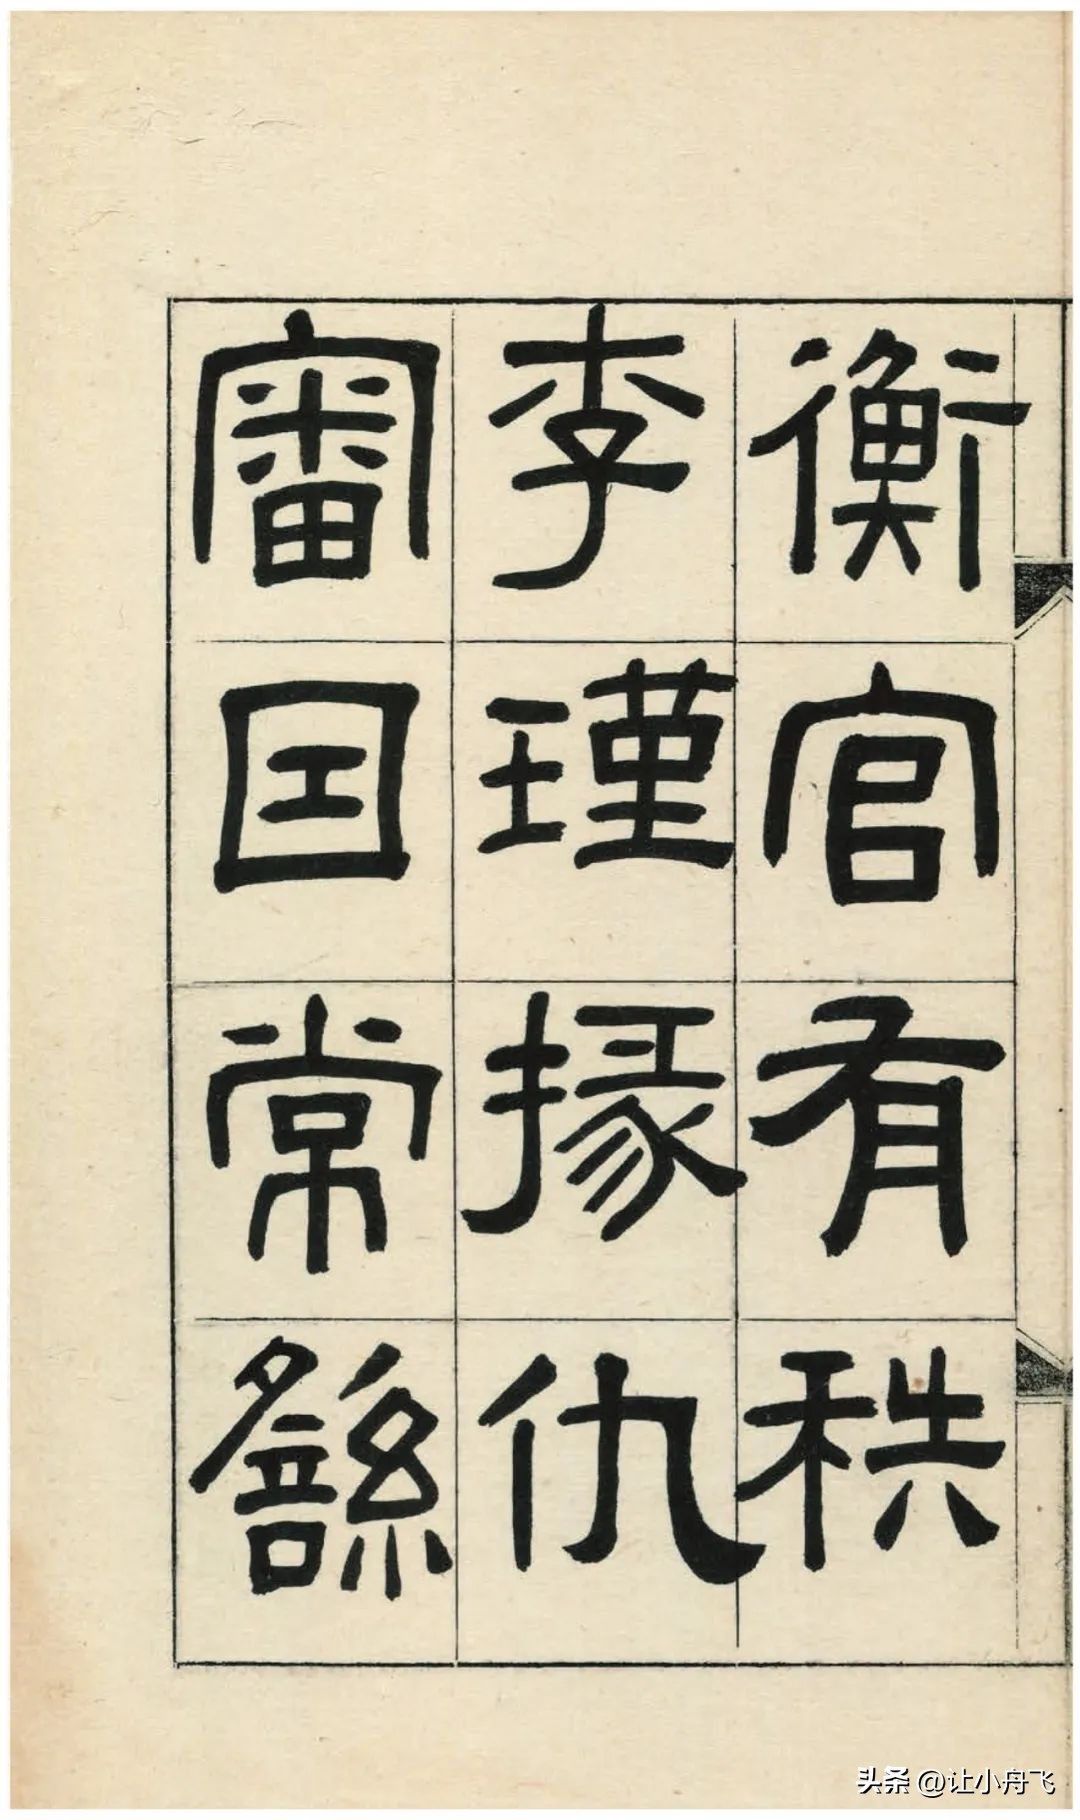 衡官有秩
李瑾掾仇
審囙常繇
头条 @让小舟飞